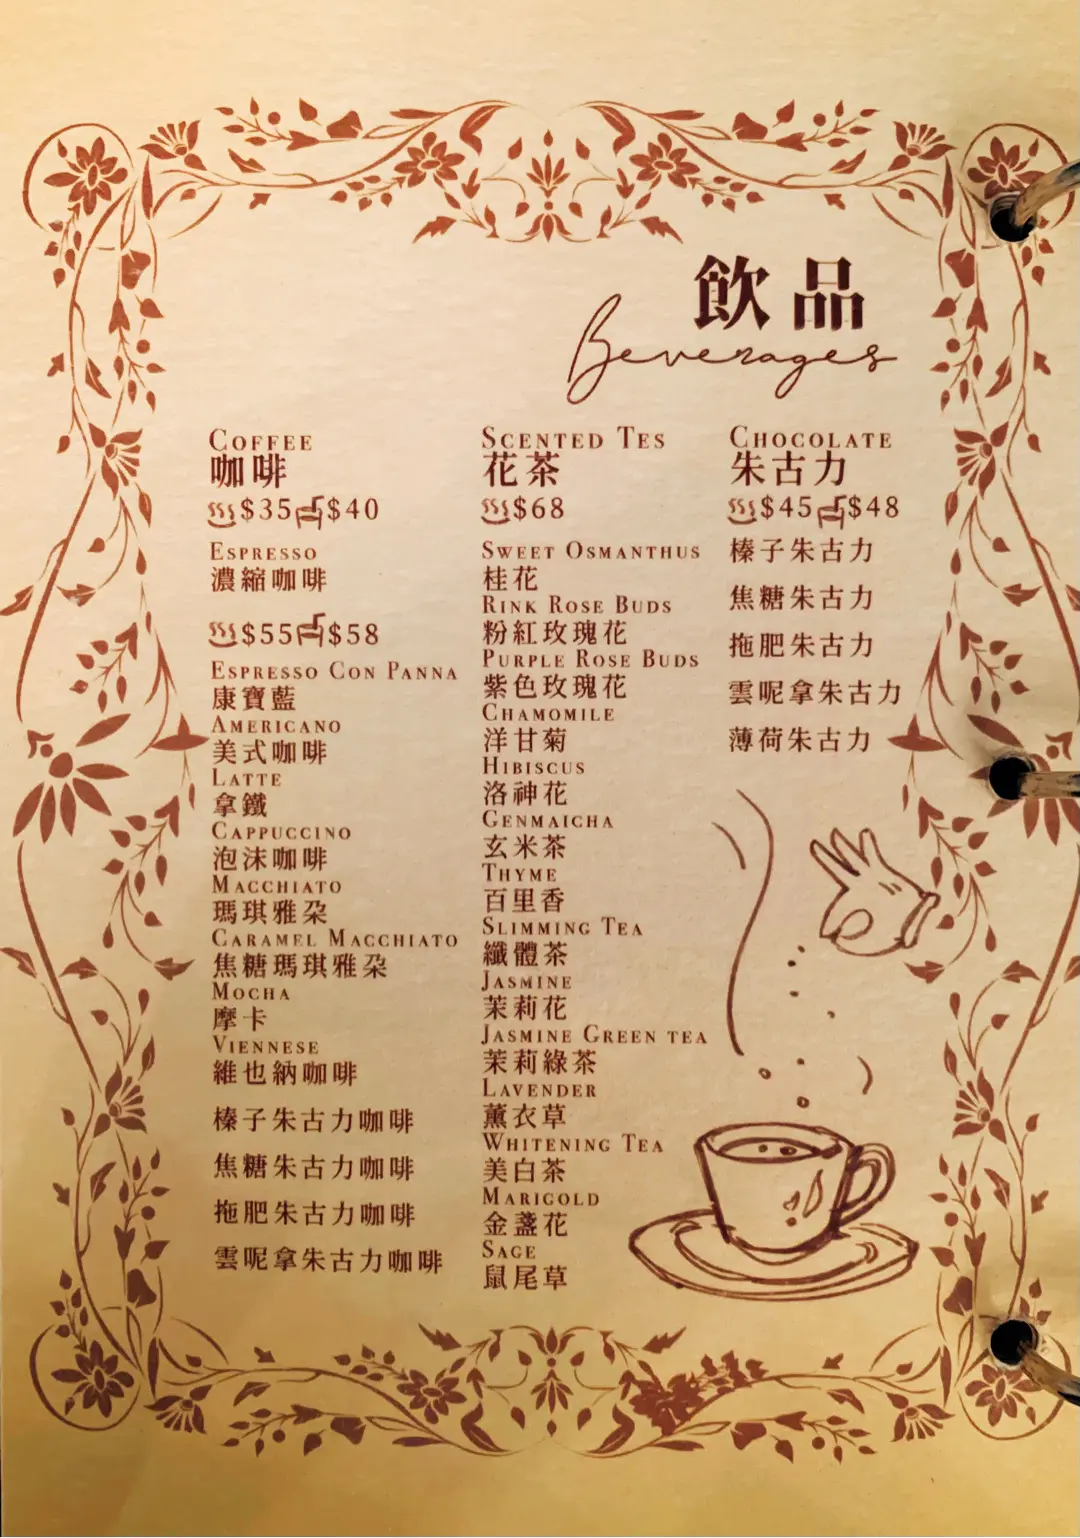 飲品
Beverages
COFFEE
咖啡
$35 $40
ESPRESSO
濃縮咖啡
$55 $58
ESPRESSO CON PANNA
康寶藍
AMERICANO
美式咖啡
LATTE
拿鐵
CAPPUCCINO
泡沫咖啡
MACCHIATO
瑪琪雅朶
CARAMEL MACCHIATO
焦糖瑪琪雅朶
MOCHA
摩卡
VIENNESE
維也納咖啡
榛子朱古力咖啡
焦糖朱古力咖啡
拖肥朱古力咖啡
雲呢拿朱古力咖啡
SCENTED TES
花茶
$68
SWEET OSMANTHUS
桂花
RINK ROSE BUDS
粉紅玫瑰花
PURPLE ROSE BUDS
紫色玫瑰花
CHAMOMILE
洋甘菊
HIBISCUS
洛神花
GENMAICHA
玄米茶
THYME
百里香
SLIMMING TEA
纖體茶
JASMINE
茉莉花
JASMINE GREEN TEA
茉莉綠茶
LAVENDER
薰衣草
WHITENING TEA
美白茶
MARIGOLD
金盞花
SAGE
鼠尾草
CHOCOLATE
朱古力
$45 $48
榛子朱古力
焦糖朱古力
拖肥朱古力
雲呢拿朱古力
薄荷朱古力